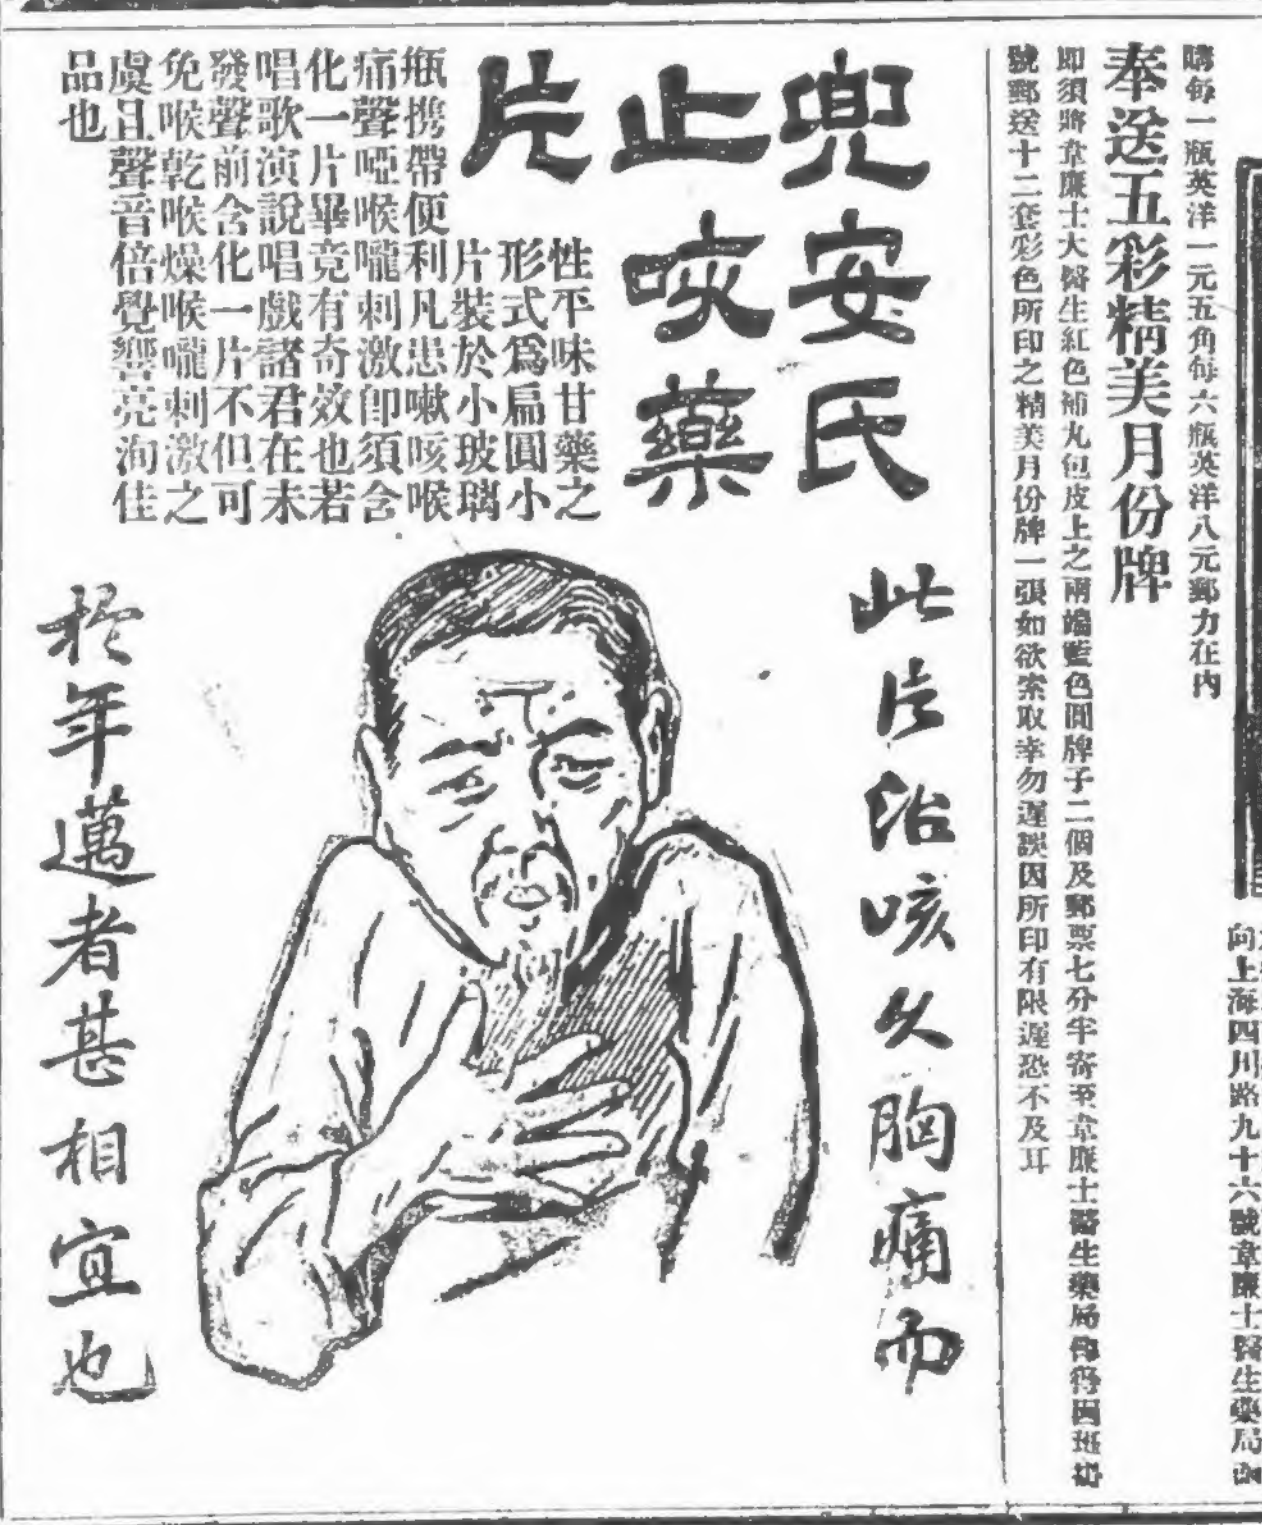 向上海四川路九十六號韋廉士醫生藥局函
購每一瓶英洋一元五角每六瓶英洋八元郵力在內
奉送五彩精美月份牌
即須將韋廉士大醫生紅色補丸包皮上之兩端藍色圓牌子二個及郵票七分半寄至韋廉士醫生藥局
號郵送十二套彩色所印之精美月份牌一張如欲索取幸勿遲誤因所印有限遲恐不及耳
兜安氏
止咳藥
片
性平味甘藥之
形式爲扁圓小
片裝於小玻璃
瓶攜帶便利凡患嗽咳喉
痛聲啞喉嚨刺激卽須含
化一片畢竟有奇效也若
唱歌演說唱戲諸君在未
發聲前含化一片不但可
免喉乾喉燥喉嚨刺激之
虞且聲音倍覺響亮洵佳
品也
此片治咳久胸痛而
於年邁者甚相宜也